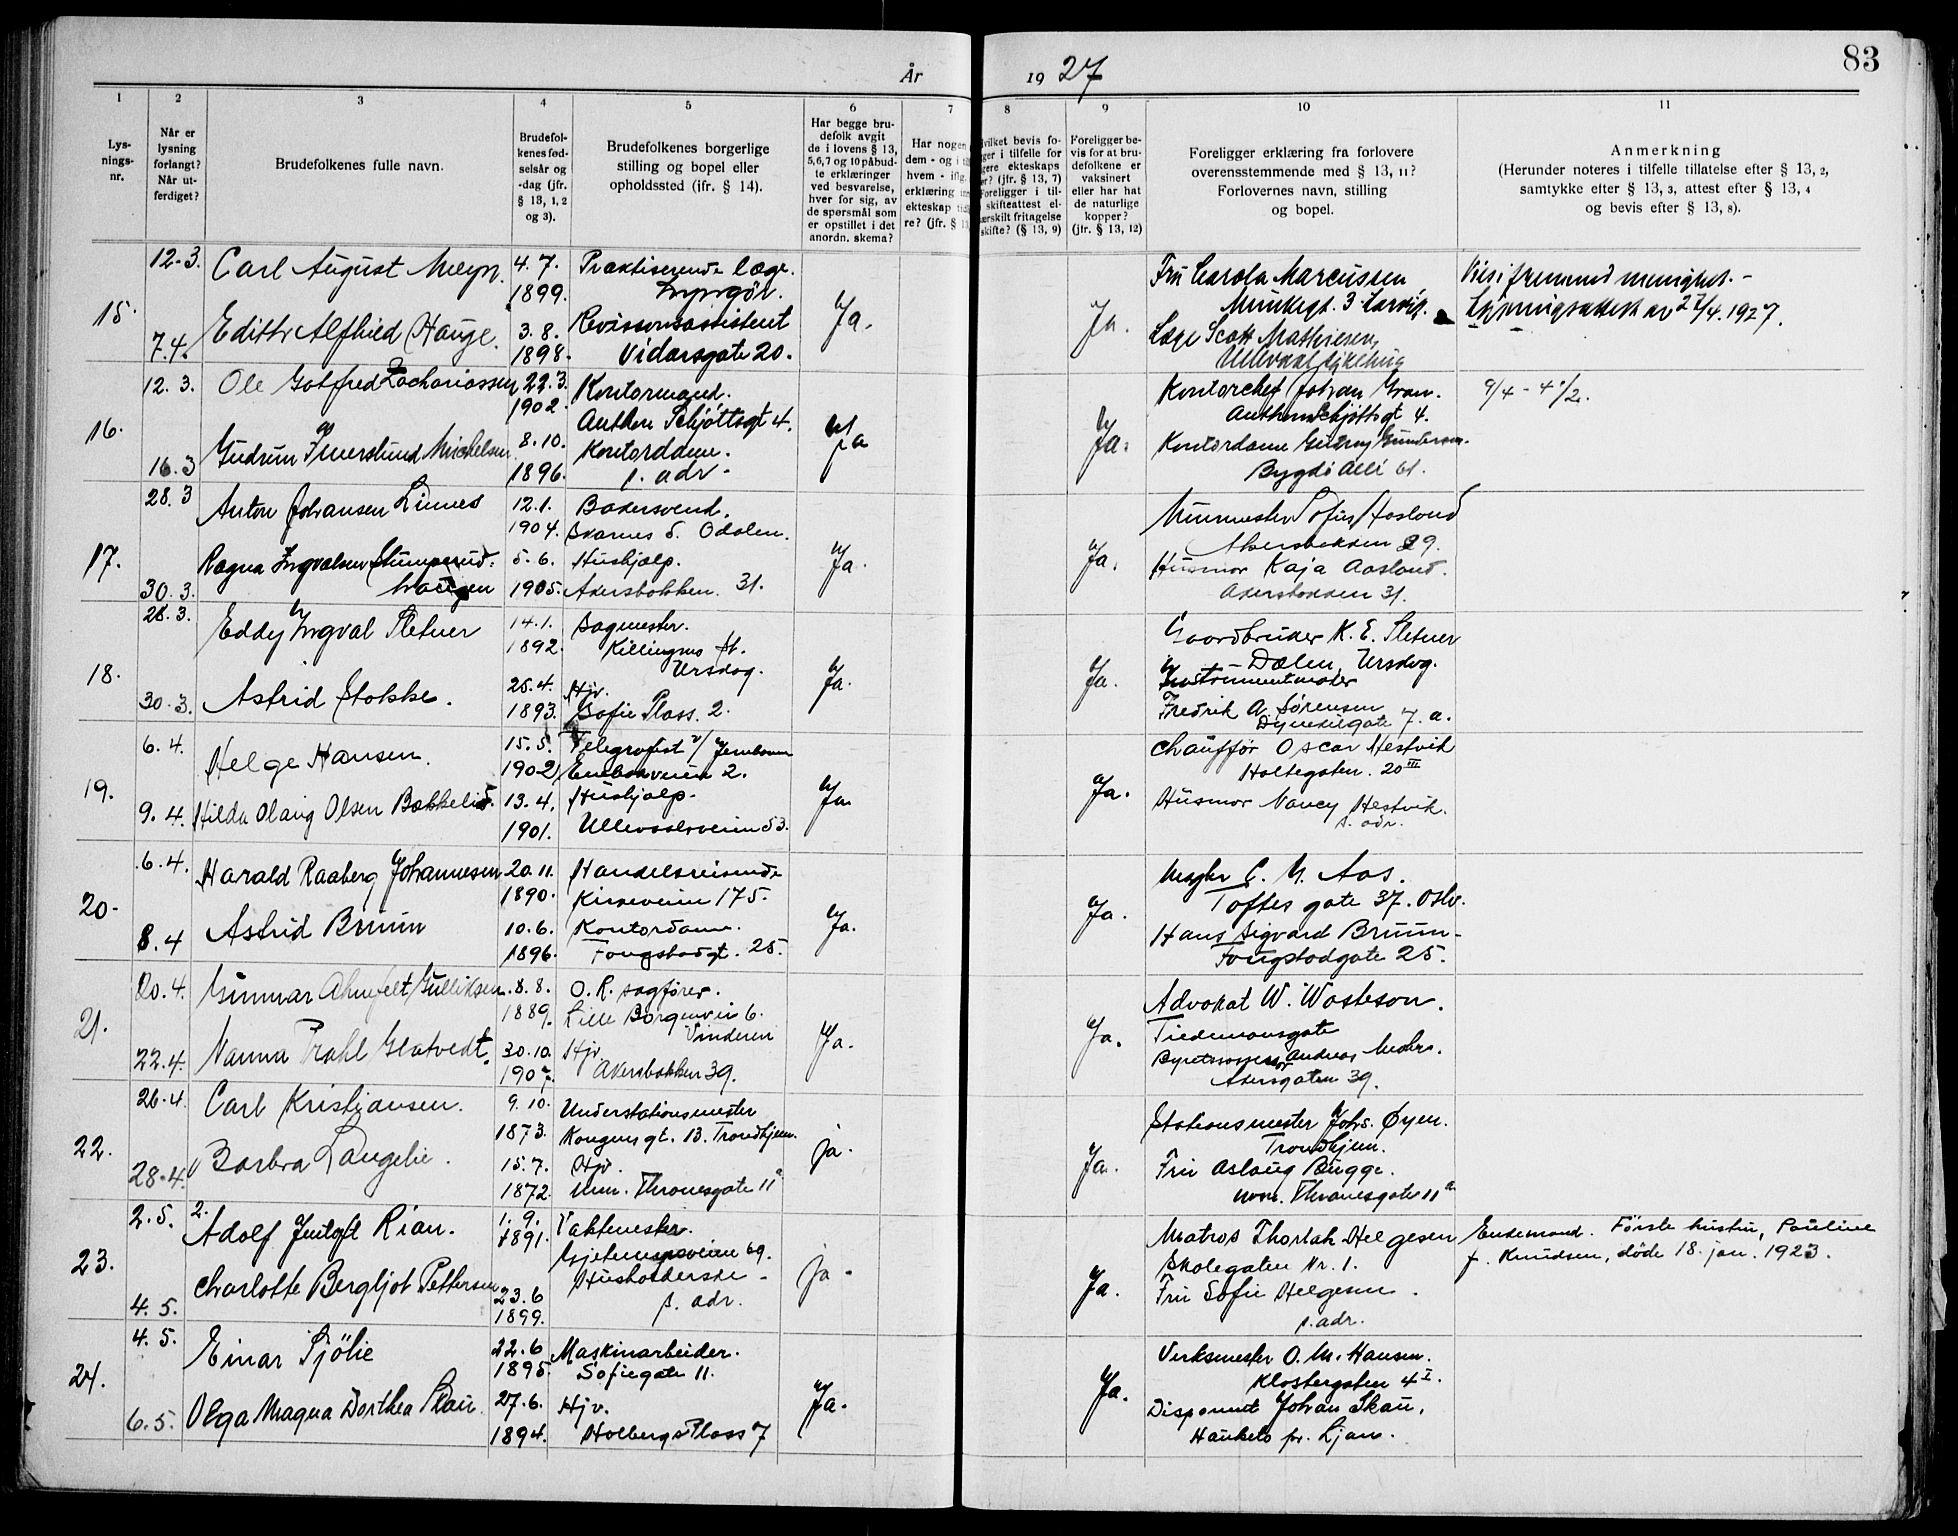 83
År 1927
1 2 3 4 5 6 7 8 9 10 11
Lys-
nings-
nr.
Når er
lysning
forlangt?
Når ut-
ferdiget?
Brudefolkenes fulle navn.
Brudefol-
kenes fød-
selsår og
-dag (jfr.
§ 13, 1, 2
og 3).
Brudefolkenes borgerlige
stilling og bopel eller
opholdssted (ifr. § 14).
Har begge bru-
defolk avgit
de i lovens § 13,
5,6,7 og 10 påbud-
te erklæringer
ved besvarelse,
hver for sig, av
de spørsmål som
er opstillet i det
anordn. skema?
Har nogen
dem - og i
hvem - ifl.
erklæring
ekteskap
re? (jfr. §
hvilket bevis fo-
i tilfelle for
ekteskaps
(jfr. § 13, 7)
Foreligger i til-
skifteattest el-
særskilt fritagelse
skifte? (§ 13, 9)
Foreligger be-
vis for at bru-
defolkene er
vaksinert
eller har hat
de naturlige
kopper?
(jfr. § 13, 12)
Foreligger erklæring fra forlovere
overensstemmende med § 13, 11?
Forlovernes navn, stilling
og bopel.
Anmerkning
(Herunder noteres i tilfelle tillatelse efter § 13, 2,
samtykke efter § 13, 3, attest efter § 13, 4
og bevis efter § 13, 8).
15.
12.3.
7.4.
Carl August Meyn.
Edith Alfhild Hauge.
4.7.
1899.
3.8.
1898.
Praktiserende læge.
Lyngør.
Revisionsassistent
Vidarsgate 20.
Ja.
Ja.
Fru Carola Marcussen
Munkegt. 3 Larvik.
Læge Scott Mathiesen,
Ullevaal sykehus
Vies i fremmed menighet. -
Lysningsattest av 27/4.1927.
16.
12.3.
16.3
Ole Gotfred Zachariassen
Gudrun Imerslund Michelsen
22.3.
1902.
8.10.
1896.
Kontormand.
Anthon Schjøttsgt 4.
Kontordame.
s. adr.
Ja
Ja.
Kontorchef Johan Gran.
Anthon Schjøttsgt 4.
Kontordame Gudrun Gundersen.
Bygdø Allé 61.
9/4 - 4 1/2.
17.
28.3
30.3.
Anton Johansen Linnes
Ragna Ingvalsen Stumperud.
12.1.
1904.
5.6.
1905.
Bakersvend.
Skarnes S. Odalen.
Hushjælp.
Akersbakken. 31.
Ja.
Ja.
Murmester Sofus Aasland
Akersbakken 29.
Husmor Kaja Aasland.
Akersbakken 31.
18.
28.3.
30.3.
Eddy Ingval Sletner
Astrid Stokke.
14.1.
1892.
25.4.
1893.
Sagmester.
Killingmo St.
Ursdog.
Hjv.
Sofie Plass. 2.
Ja.
Ja.
Gaardbruker K. E. Sletner
Dalen, Ursdog.
Instrumentmaker
Fredrik A. Sørensen
Dynekilgate 7. a.
19.
6.4.
9.4.
Helge Hansen.
Hilda Olaug Olsen Bakkelid.
15.5.
1902
13.4.
1901.
Telegrafist v/ Jernbanen
Enebakveien 2.
Hushjælp.
Ullevaalsveien 53.
Ja.
Ja.
Chauffør Oscar Hestvik
Holtegaten. 20 III
Husmor Nancy Hestvik.
s. adr.
20.
6.4.
8.4
Harald Raaberg Johannesen
Astrid Bruun
20.11.
1890.
10.6.
1896.
Handelsreisende
Kirkeveien 175.
Kontordame.
Fougstadgt. 25.
Ja.
Ja.
Megler C. N. Aas.
Toftes gate 37. Oslo.
Hans Sigvard Bruun
Fougstadgate 25.
21.
20.4.
22.4.
Gunnar Ahnfelt Gulliksen
Nanna Prahl Glatvedt.
8.8.
1889.
30.10.
1907.
O. R. sagfører.
Lille Borgenvei 6.
Vinderen
Hjv.
Akersbakken 39.
Ja.
Ja.
Advokat W. Wosteson.
Tiedemansgate
Byretsassessor Andreas Mohr.
Akersgaten 39.
22.
26.4
28.4.
Carl Kristiansen.
Barbra Langelie.
9.10.
1873.
15.7.
1872.
Understationsmester
Kongens gt. 13. Trondhjem.
Hjv.
Mar. Thranesgate 11 a
ja.
Ja.
Stationsmester Johs. Øyen.
Trondhjem.
Fru Aslaug Bugge.
Mar. Thranesgate 11 a
23.
2.5.
4.5.
2.
Adolf Jentoft Rian.
Charlotte Bergljot Pettersen
1.9.
1891.
23.6
1899.
Vaktmester.
Gjetemyrsveien 69.
Husholderske
s. adr.
ja.
Ja.
Matros Thorlak Helgesen
Skolegaten Nr. 1.
Fru Sofie Helgesen.
s. adr.
Enkemand. Første hustru, Pauline
f. Knudsen, døde 18. jan. 1923.
24.
4.5.
6.5.
Einar Sjölie
Olga Magna Dorthea Skau.
22.6
1895.
27.6.
1894.
Maskinarbeider.
Sofiegate 11.
Hjv.
Holbergs Plass 7
Ja.
Ja.
Verksmester O. M. Hansen.
Klostergaten 4 I.
Disponent Johan Skau,
Hauketo pr. Ljan.